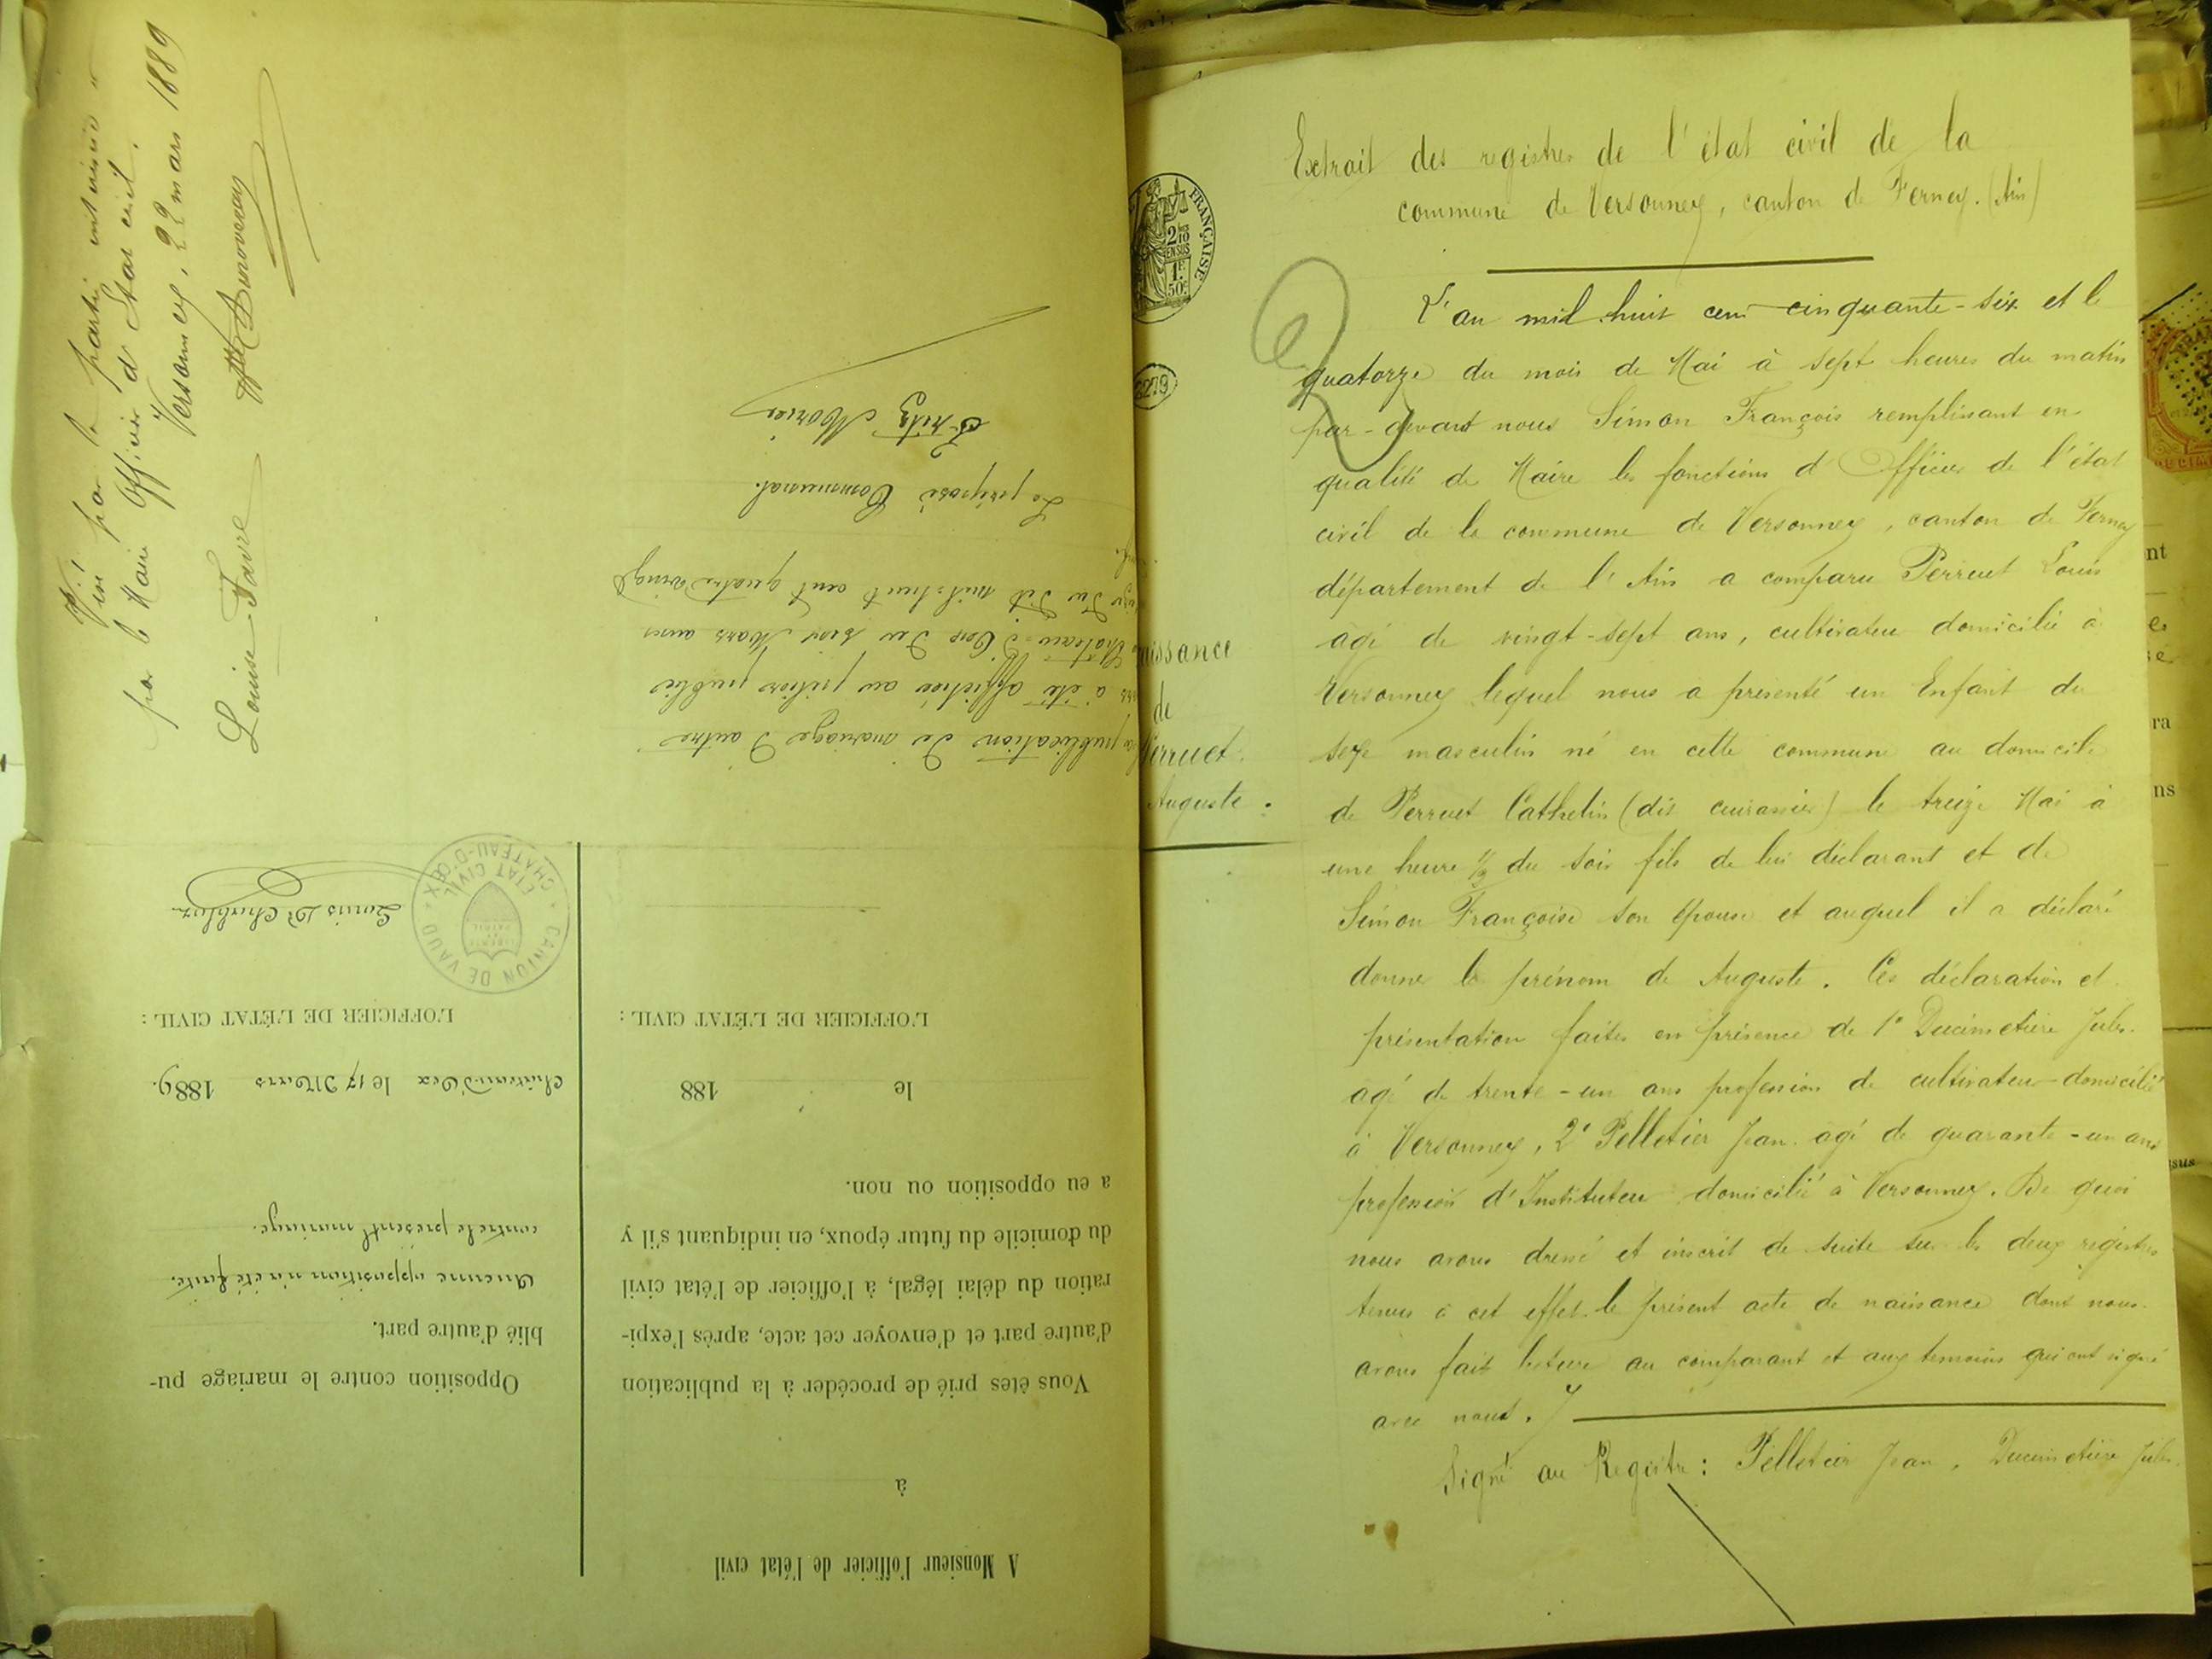 Visé par la partie intéressée et
par le Maire Officier d'Etat civil.
Versonnex, 22 mars 1889
Louise Favre
La publication de mariage d'autre
a été affichée au pilier public
Château-d'Oex du six Mars au
seize du dit mil huit cent quatre vingt
Le préposé Communal.
Fritz Morier
A Monsieur l'officier de l'état civil
à
Vous êtes prié de procéder à la publication
d'autre part et d'envoyer cet acte, après l'expi-
ration du délai légal, à l'officier de l'état civil
du domicile du futur époux, en indiquant s'il y
a eu opposition ou non.
le 188
L'OFFICIER DE L'ÉTAT CIVIL :
Opposition contre le mariage pu-
blié d'autre part.
Aucune opposition n'a été faite
contre le présent mariage.
Château-d'Oex le 17 Mars 1889.
L'OFFICIER DE L'ÉTAT CIVIL :
ETAT CIVIL
CHATEAU-D'ŒX
CANTON DE VAUD
LIBERTÉ ET PATRIE
FRANÇAISE
2/10 EN SUS
1F 50c
2279
Extrait des registres de l'état civil de la
commune de Versonnex, canton de Ferney. (Ain)
Naissance
de
Perruet
Auguste.
L'an mil huit cent cinquante-six et le
quatorze du mois de Mai à sept heures du matin
par-devant nous Simon François remplissant en
qualité de Maire les fonctions d'Officier de l'état
civil de la commune de Versonnex, canton de Ferney
département de l'Ain a comparu Perruet Louis
âgé de vingt-sept ans, cultivateur domicilié à
Versonnex lequel nous a présenté un Enfant du
sexe masculin né en cette commune au domicile
de Perruet Cathelin (dit cuirassier) le treize Mai à
une heure 1/2 du soir fils de lui déclarant et de
Simon Françoise son épouse et auquel il a déclaré
donner le prénom de Auguste. Ces déclaration et
présentation faites en présence de 1° Ducimetière Jules
âgé de trente-un ans profession de cultivateur domicilié
à Versonnex, 2° Pelletier Jean âgé de quarante-un ans
profession d'Instituteur domicilié à Versonnex. De quoi
nous avons dressé et inscrit de suite sur les deux registres
tenus à cet effet le présent acte de naissance dont nous
avons fait lecture au comparant et aux témoins qui ont signé
avec nous.
Signé au Registre : Pelletier Jean, Ducimetière Jules